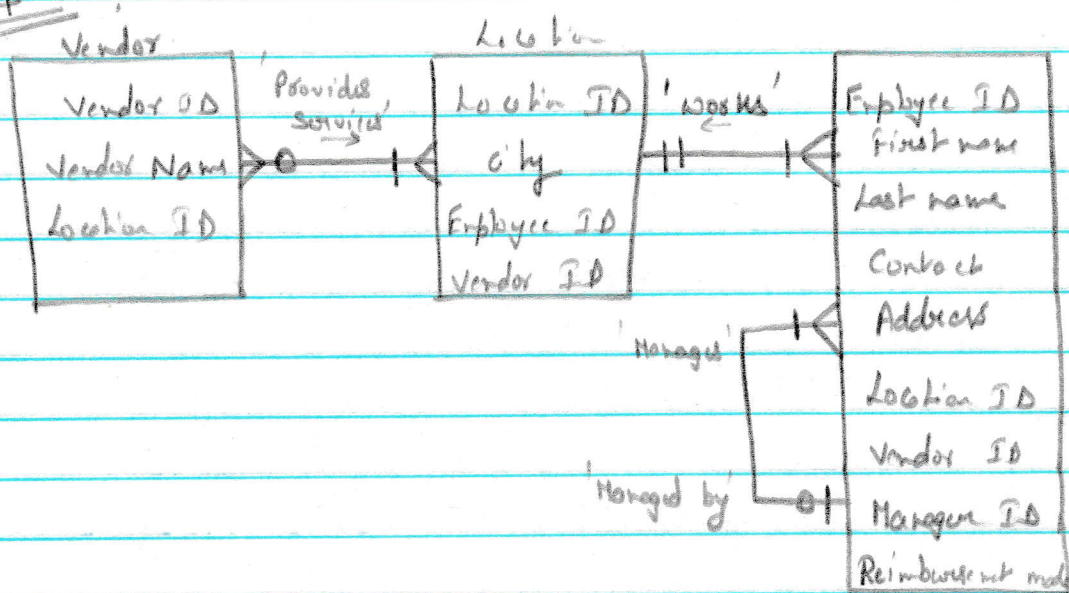 Vendor
Vendor ID
Vendor Name
Location ID
'Provides
services'
Location
Location ID
City
Employee ID
Vendor ID
'works'
Employee ID
First name
Last name
Contact
Address
Location ID
Vendor ID
Manager ID
Reimbursement mod
'Manages'
'Managed by'